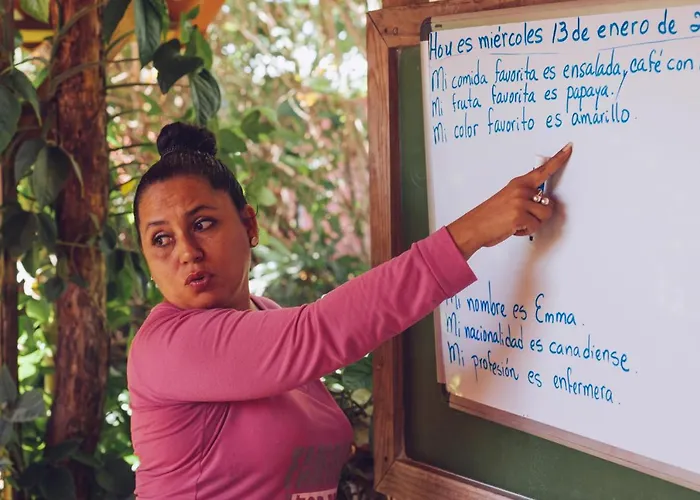 Hou es miércoles 13 de enero de
Mi comida favorita es ensalada, café con
Mi fruta favorita es papaya.
Mi color favorito es amarillo.
Mi nombre es Emma.
Mi nacionalidad es canadiense.
Mi profesión es enfermera.